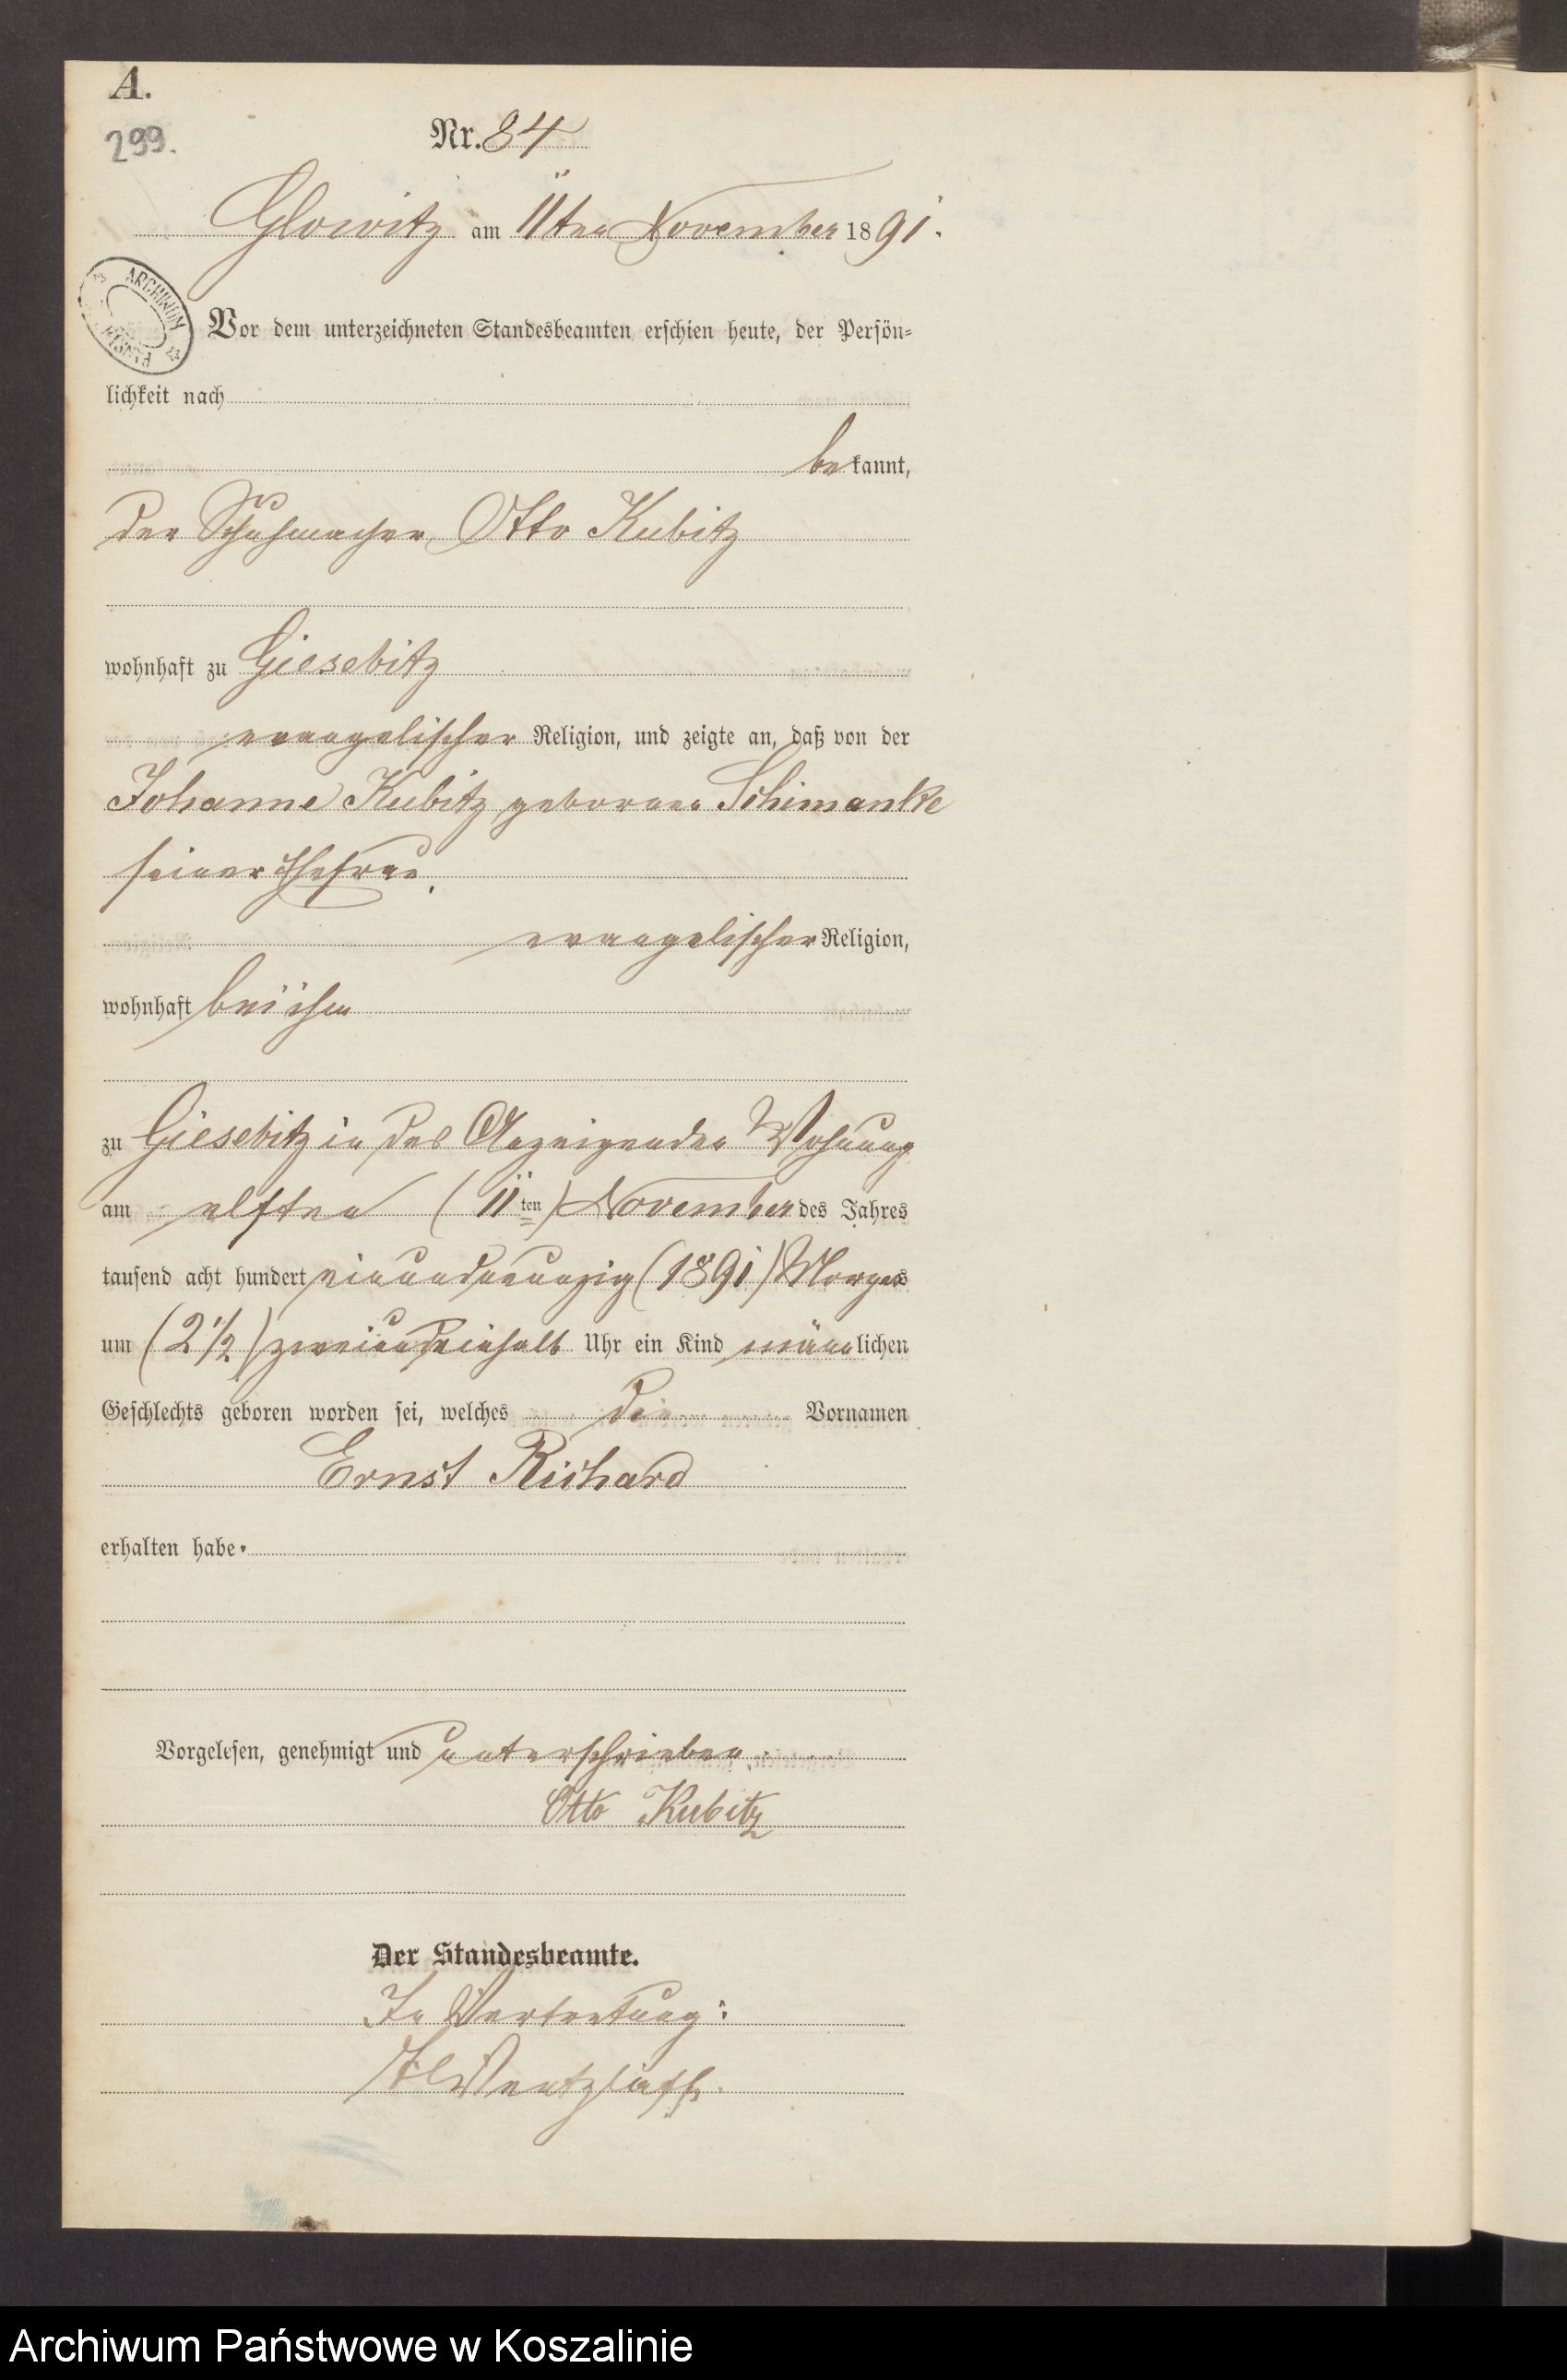 A.
299.
Nr. 84
Glowitz am 11ten November 1891.
ARCHIWUM
Vor dem unterzeichneten Standesbeamten erschien heute, der Persön-
lichkeit nach
bekannt,
der Schuhmacher Otto Kubitz
wohnhaft zu Giesebitz
evangelischer Religion, und zeigte an, daß von der
Johanne Kubitz geborenen Schimanke
seiner Ehefrau,
evangelischer Religion,
wohnhaft bei ihm
zu Giesebitz in des Anzeigenden Wohnung
am elften (11ten) November des Jahres
tausend acht hundert einundneunzig (1891) Morgens
um (2 1/2) zweiundeinhalb Uhr ein Kind männlichen
Geschlechts geboren worden sei, welches die Vornamen
Ernst Richard
erhalten habe.
Vorgelesen, genehmigt und unterschrieben.
Otto Kubitz
Der Standesbeamte.
In Vertretung:
Archiwum Państwowe w Koszalinie